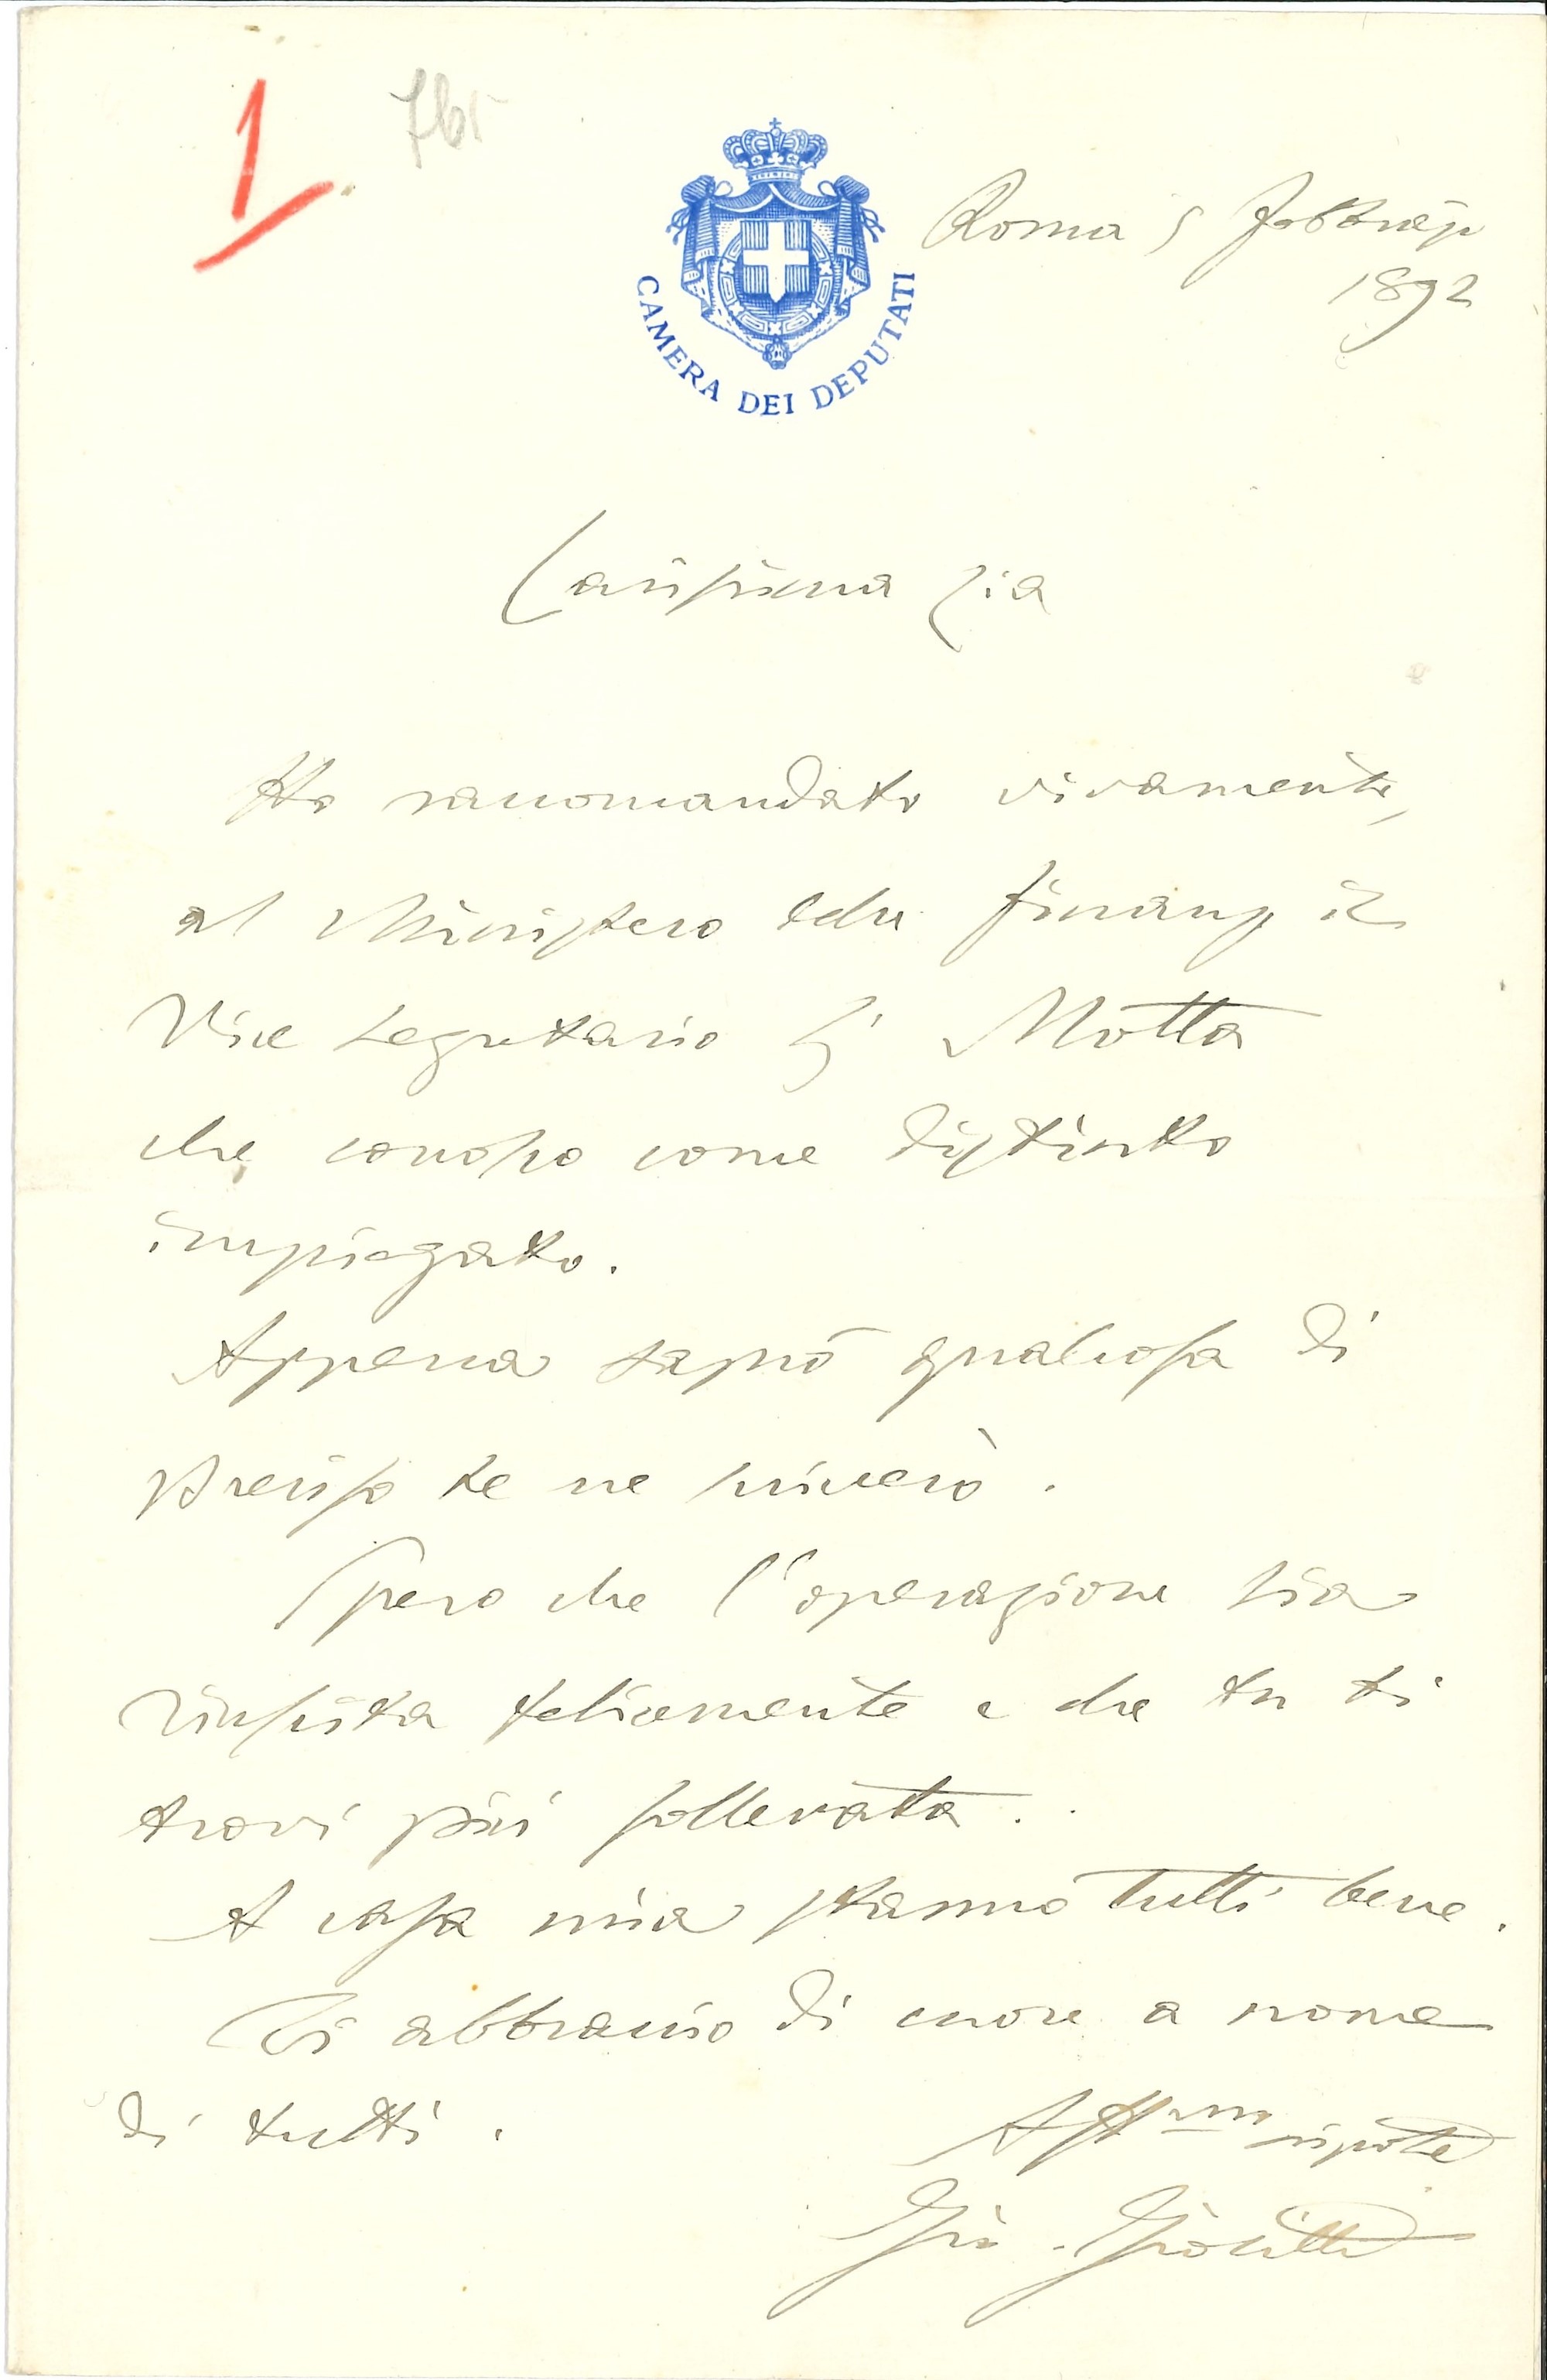 1
CAMERA DEI DEPUTATI
Roma 5 Febbraio
1892
Carissima zia
Ho raccomandato vivamente,
al Ministero delle finanze il
Vice segretario Sr Motta
che conosco come distinto
impiegato.
Appena saprò qualcosa di
preciso te ne scriverò.
Spero che l'operazione sia
riuscita felicemente e che tu ti
trovi più sollevata.
A casa mia stanno tutti bene.
Ti abbraccio di cuore a nome
di tutti.
Affmo nipote
Gio. Giolitti